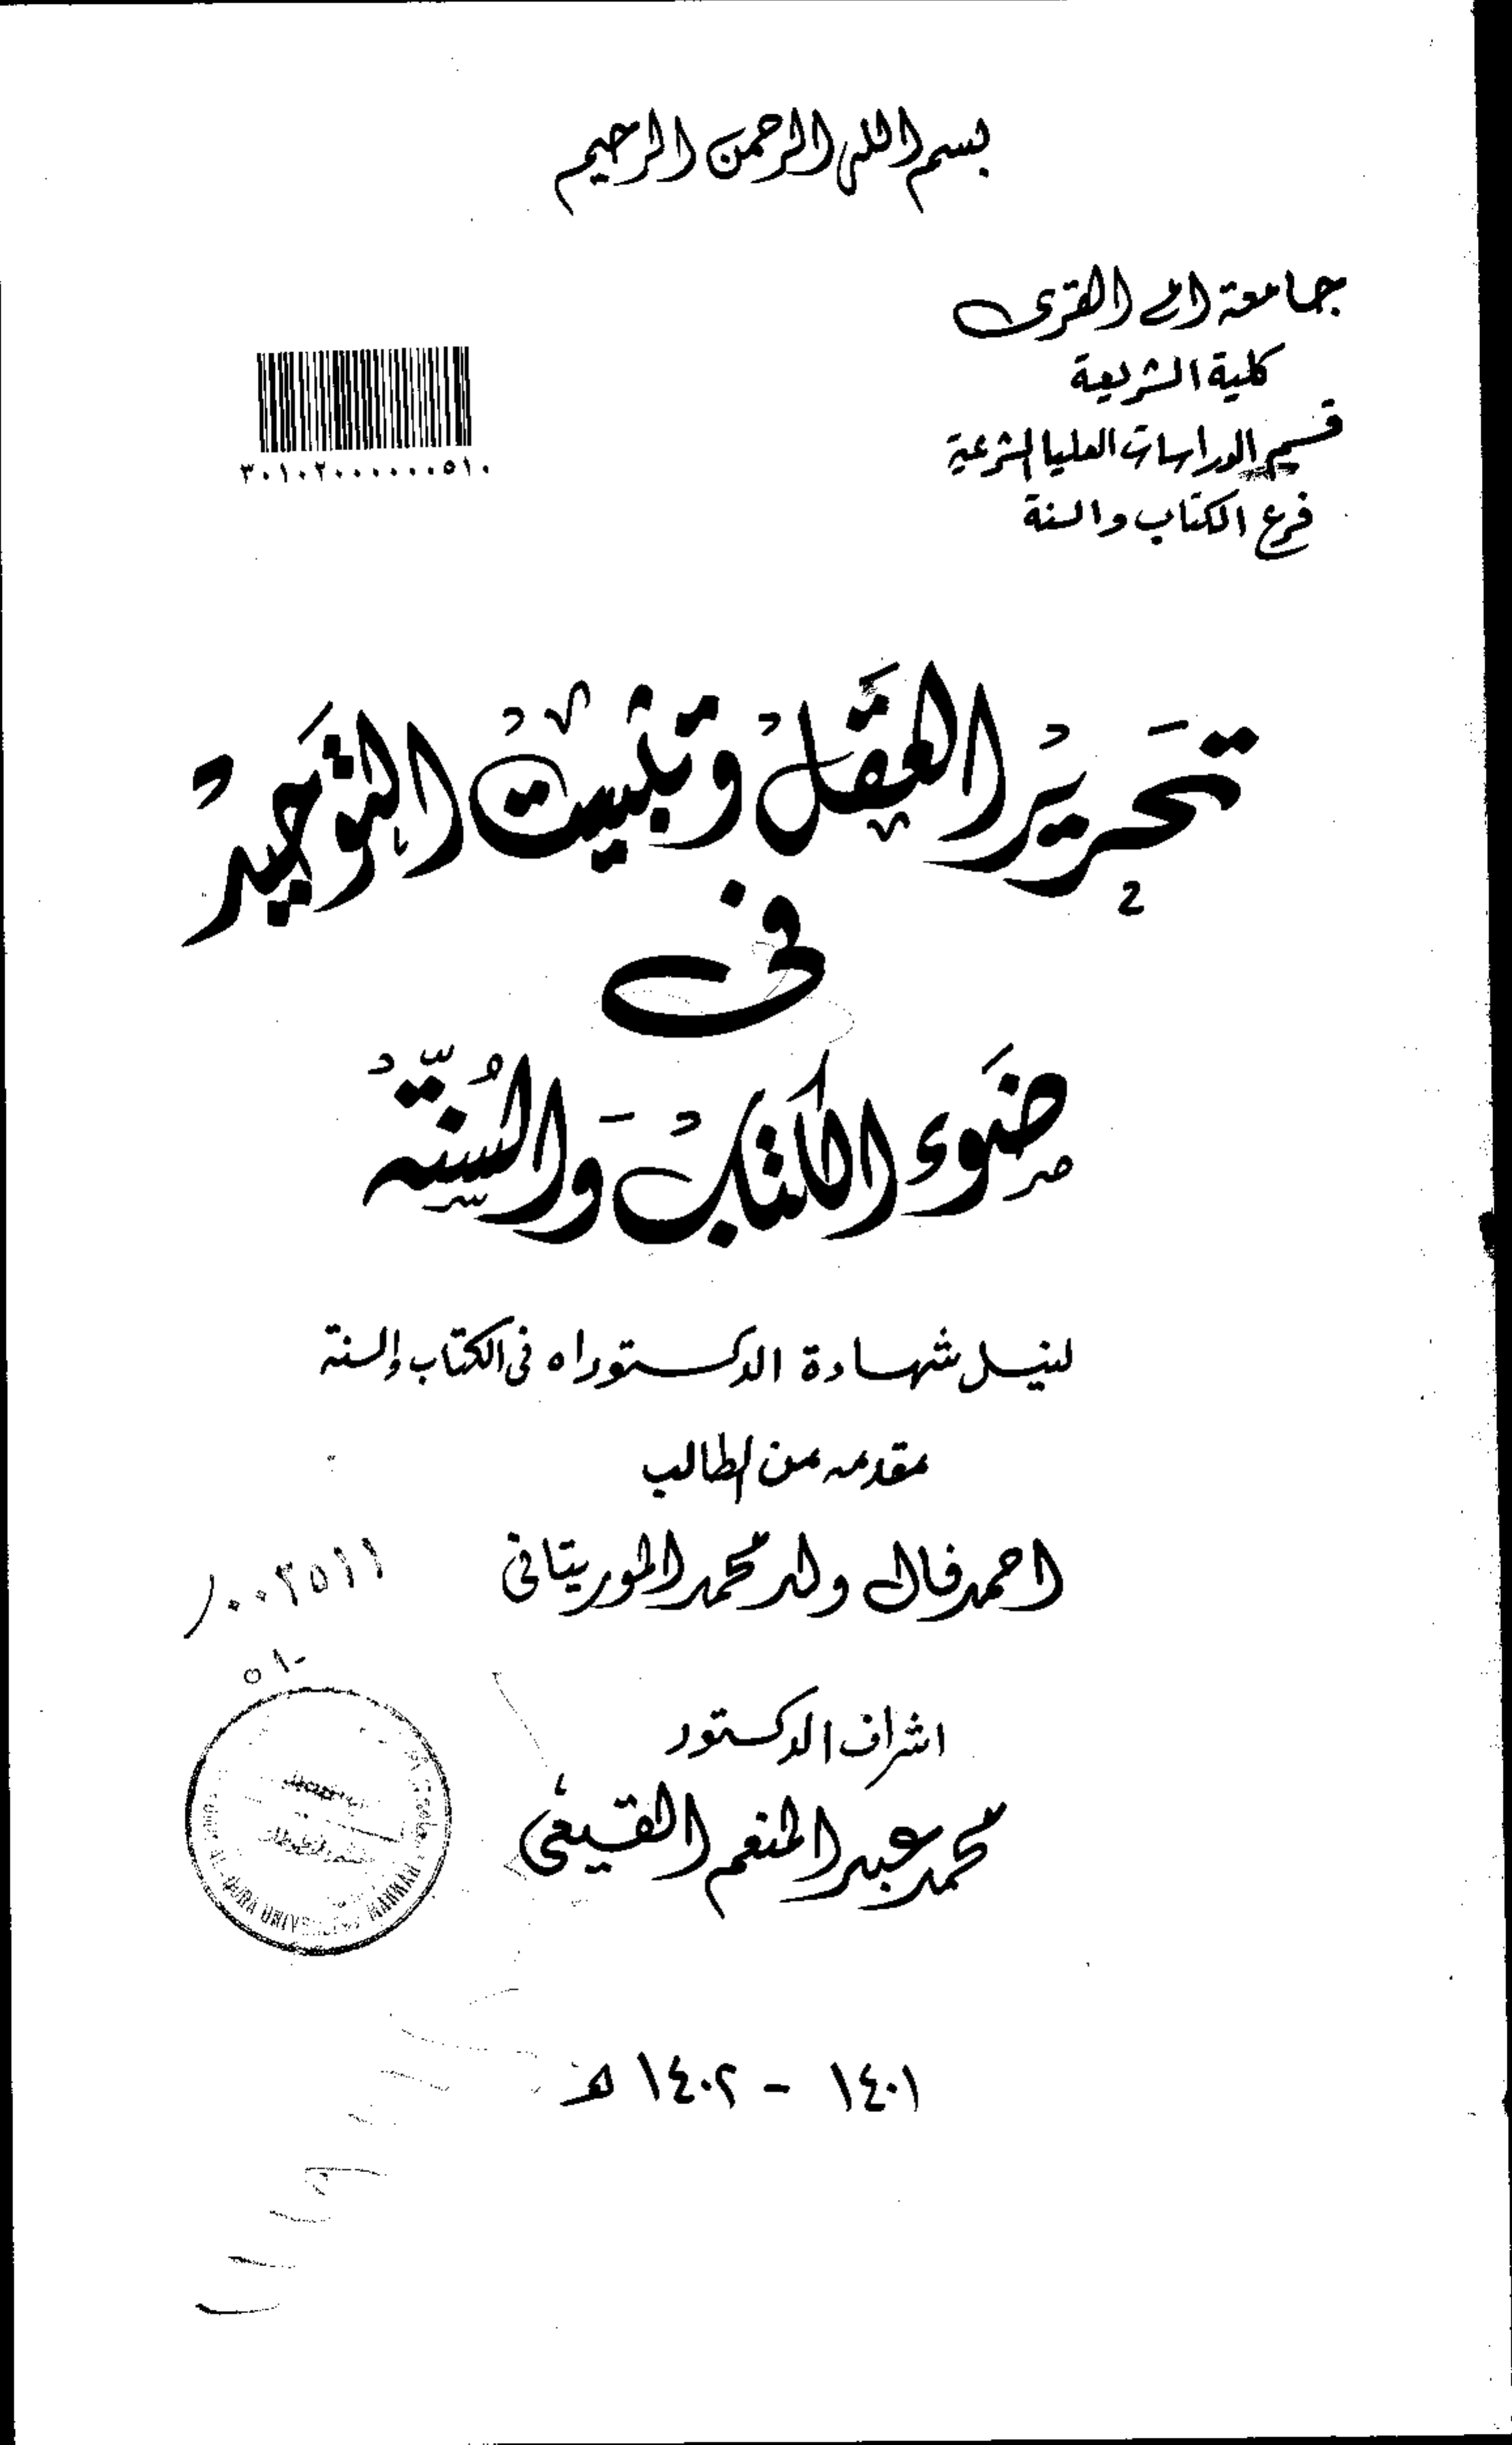 بسم الله الرحمن الرحيم
جامعة ام القرى
كلية الشريعة
قسم الدراسات العليا الشرعية
فرع الكتاب والسنة
٣٠١٠٢٠٠٠٠٠٠٥١٠
تحرير العقل وتثبيت التوحيد
فى
ضوء الكتاب والسنة
لنيل شهادة الدكتوراه فى الكتاب والسنة
مقدمه من الطالب
احمد فال ولد محمد الموريتانى
١٠٠٢٥١١
٥١٠
اشراف الدكتور
محمد عبد المنعم القيعى
QURA UNIV MAKKAH
١٤٠١ - ١٤٠٢ هـ